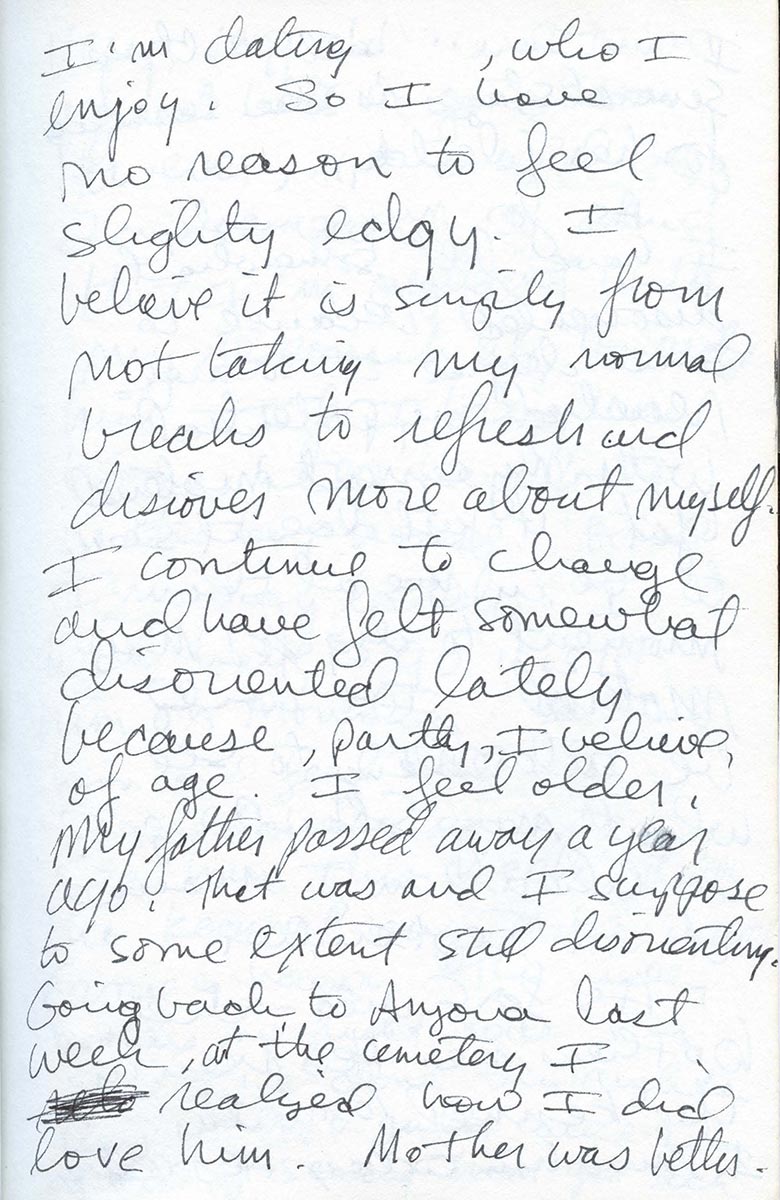 I'm dating , who I
enjoy. So I have
no reason to feel
slightly edgy. I
beleive it is simply from
not taking my normal
breaks to refresh and
discover more about myself.
I continue to change
and have felt somewhat
disoriented lately
because, partly, I believe,
of age. I feel older.
My father passed away a year
ago. That was and I suppose
to some extent still disorienting.
Going back to Arizona last
week, at the cemetery I
realized how I did
love him. Mother was better.